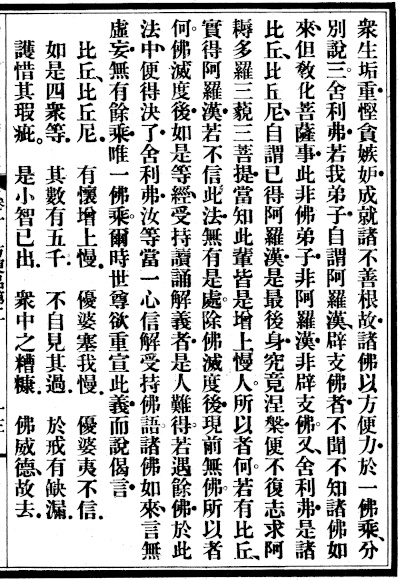 衆生垢重慳貪嫉妒成就諸不善根故諸佛以方便力於一佛乘、分
別說三舍利弗若我弟子自謂阿羅漢、辟支佛者不聞不知諸佛如
來、但敎化菩薩事此非佛弟子非阿羅漢非辟支佛。又、舍利弗是諸
比丘、比丘尼、自謂已得阿羅漢是最後身究竟涅槃便不復志求阿
耨多羅三藐三菩提當知此輩皆是增上慢人。所以者何若有比丘、
實得阿羅漢若不信此法無有是處。除佛滅度後現前無佛。所以者
何。佛滅度後如是等經受持讀誦解義者是人難得。若遇餘佛於此
法中便得決了舍利弗汝等當一心信解受持佛語諸佛如來、言無
虛妄無有餘乘唯一佛乘。爾時世尊欲重宣此義而說偈言
比丘、比丘尼. 有懷增上慢. 優婆塞我慢. 優婆夷不信.
如是四衆等. 其數有五千. 不自見其過. 於戒有缺漏.
護惜其瑕疵。 是小智已出. 衆中之糟糠. 佛威德故去.